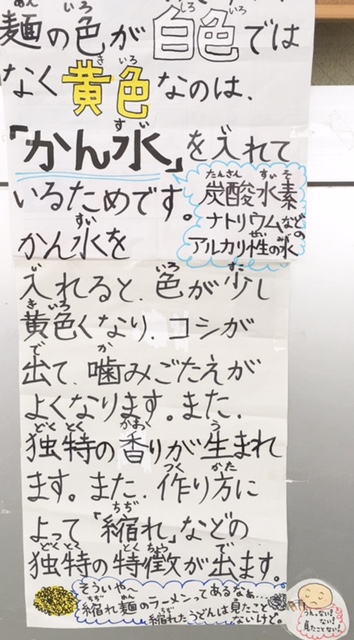 麺の色が白色では
なく黄色なのは、
「かん水」を入れて
いるためです。
炭酸水素
ナトリウムなどの
アルカリ性の水
かん水を
入れると、色が少し
黄色くなり、コシが
出て、噛みごたえが
よくなります。また、
独特の香りが生まれ
ます。また、作り方に
よって「縮れ」などの
独特の特徴が出ます。
そういやぁ
縮れ麺のラーメンってあるなぁ…
縮れたうどんは見たこと
ないけど。
うんっない!
ない!
見たことない!